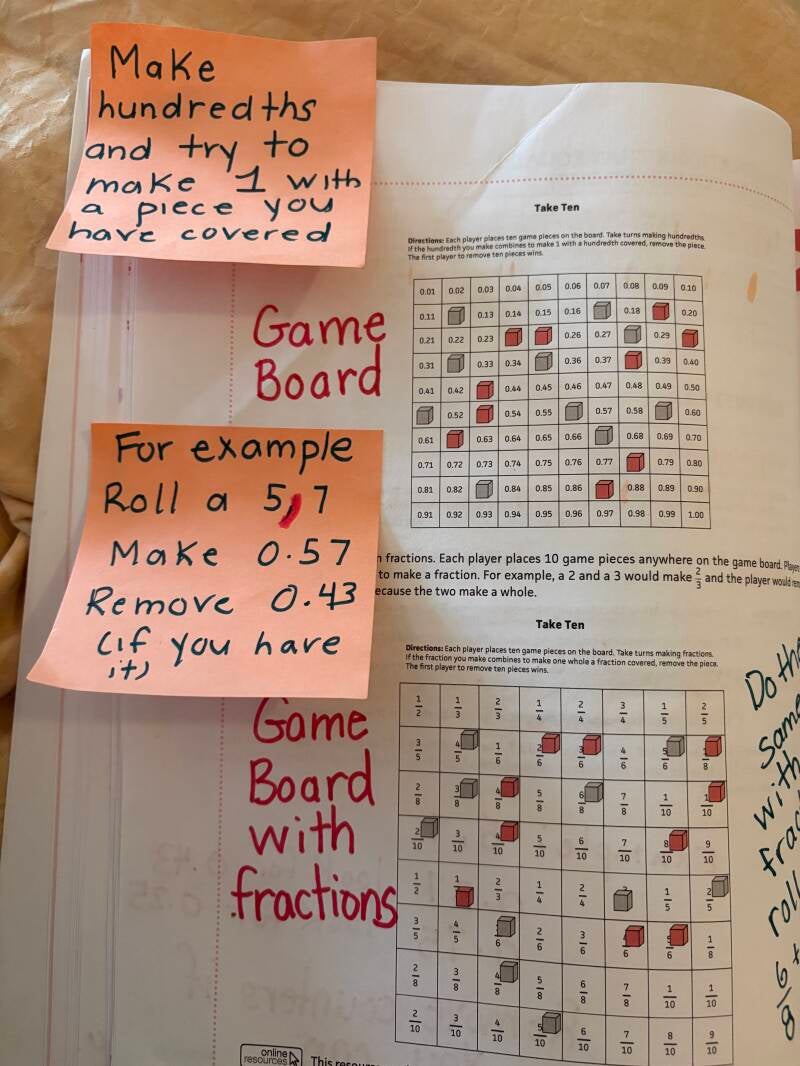 Make
hundredths
and try to
make 1 with
a piece you
have covered
Take Ten
Directions: Each player places ten game pieces on the board. Take turns making hundredths.
If the hundredth you make combines to make 1 with a hundredth covered, remove the piece.
The first player to remove ten pieces wins.
Game
Board
0.01 0.02 0.03 0.04 0.05 0.06 0.07 0.08 0.09 0.10
0.11 0.13 0.14 0.15 0.16 0.18 0.20
0.21 0.22 0.23 0.26 0.27 0.29
0.31 0.33 0.34 0.36 0.37 0.39 0.40
0.41 0.42 0.44 0.45 0.46 0.47 0.48 0.49 0.50
0.52 0.54 0.55 0.57 0.58 0.60
0.61 0.63 0.64 0.65 0.66 0.68 0.69 0.70
0.71 0.72 0.73 0.74 0.75 0.76 0.77 0.79 0.80
0.81 0.82 0.84 0.85 0.86 0.88 0.89 0.90
0.91 0.92 0.93 0.94 0.95 0.96 0.97 0.98 0.99 1.00
For example
Roll a 5, 7
Make 0.57
Remove 0.43
(if you have
it)
fractions. Each player places 10 game pieces anywhere on the game board.
to make a fraction. For example, a 2 and a 3 would make 2/3 and the player would
because the two make a whole.
Take Ten
Directions: Each player places ten game pieces on the board. Take turns making fractions.
If the fraction you make combines to make one whole a fraction covered, remove the piece.
The first player to remove ten pieces wins.
Game
Board
with
fractions
1/2 1/3 2/3 1/4 2/4 3/4 1/5 2/5
3/5 4/5 1/6 2/6 3/6 4/6 5/6 1/8
2/8 3/8 4/8 5/8 6/8 7/8 1/10 1/10
2/10 3/10 4/10 5/10 6/10 7/10 8/10 9/10
1/2 2/3 1/4 2/4 1/5 2/5
3/5 4/5 2/6 3/6 5/6 1/8
2/8 3/8 4/8 5/8 6/8 7/8 1/10 1/10
2/10 3/10 4/10 5/10 6/10 7/10 8/10 9/10
Do the
same
with
roll
online
resources
This